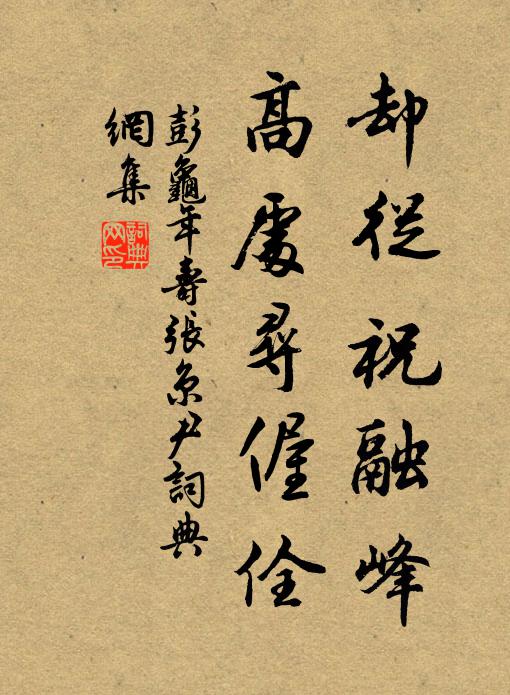 却從祝融峰
高處尋偓佺
彭龜年壽張京尹詞典
網集
詞典網印